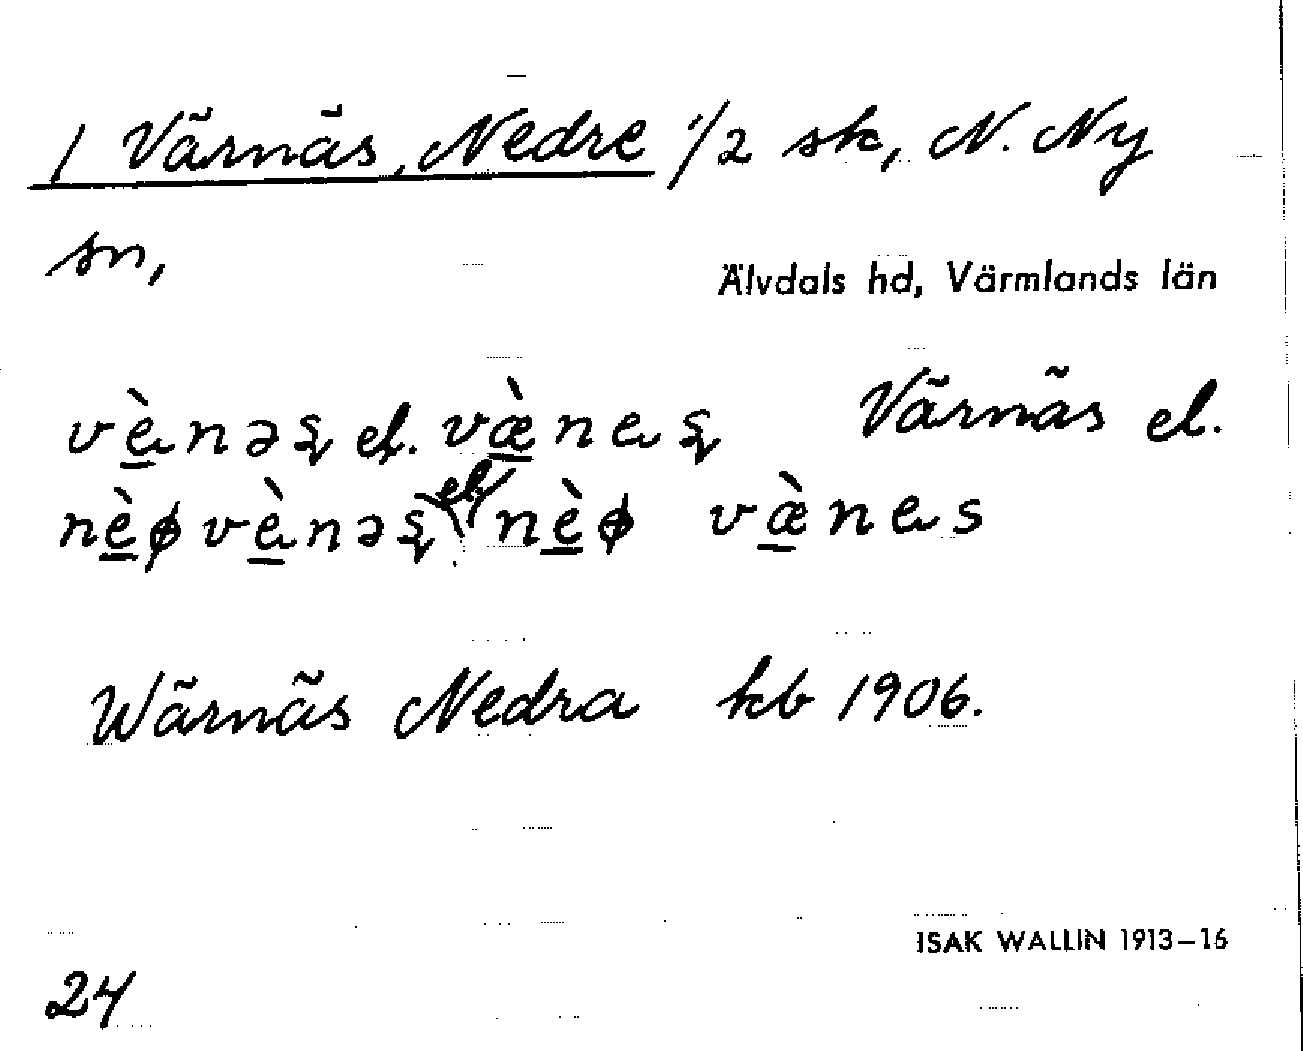 1 Värnäs, Nedre 1/2 sk, N. Ny
sn,
Älvdals hd, Värmlands län
vènəs el. væ̀nes Värnäs el.
nèø vènəs el. nèø væ̀nes
Wärnäs Nedra kb 1906.
ISAK WALLIN 1913-16
24